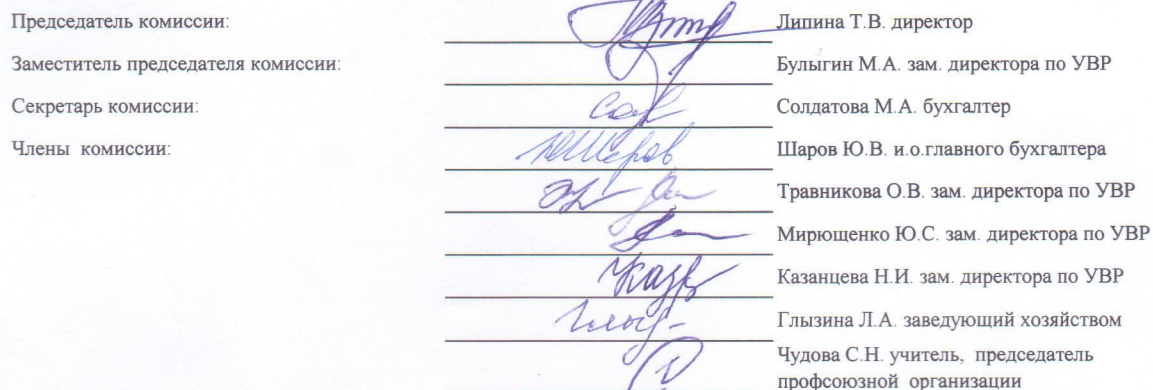 Председатель комиссии: Липина Т.В. директор
Заместитель председателя комиссии: Булыгин М.А. зам. директора по УВР
Секретарь комиссии: Солдатова М.А. бухгалтер
Члены комиссии: Шаров Ю.В. и.о.главного бухгалтера
Травникова О.В. зам. директора по УВР
Мирющенко Ю.С. зам. директора по УВР
Казанцева Н.И. зам. директора по УВР
Глызина Л.А. заведующий хозяйством
Чудова С.Н. учитель, председатель
профсоюзной организации